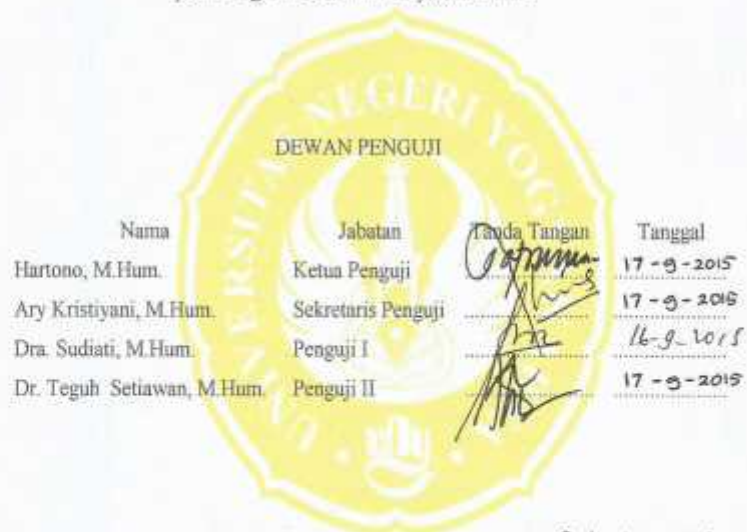 DEWAN PENGUJI
UNIVERSITAS NEGERI YOG
Nama Jabatan Tanda Tangan Tanggal
Hartono, M.Hum. Ketua Penguji 17-9-2015
Ary Kristiyani, M.Hum. Sekretaris Penguji 17-9-2015
Dra. Sudiati, M.Hum. Penguji I 16-9-2015
Dr. Teguh Setiawan, M.Hum. Penguji II 17-9-2015